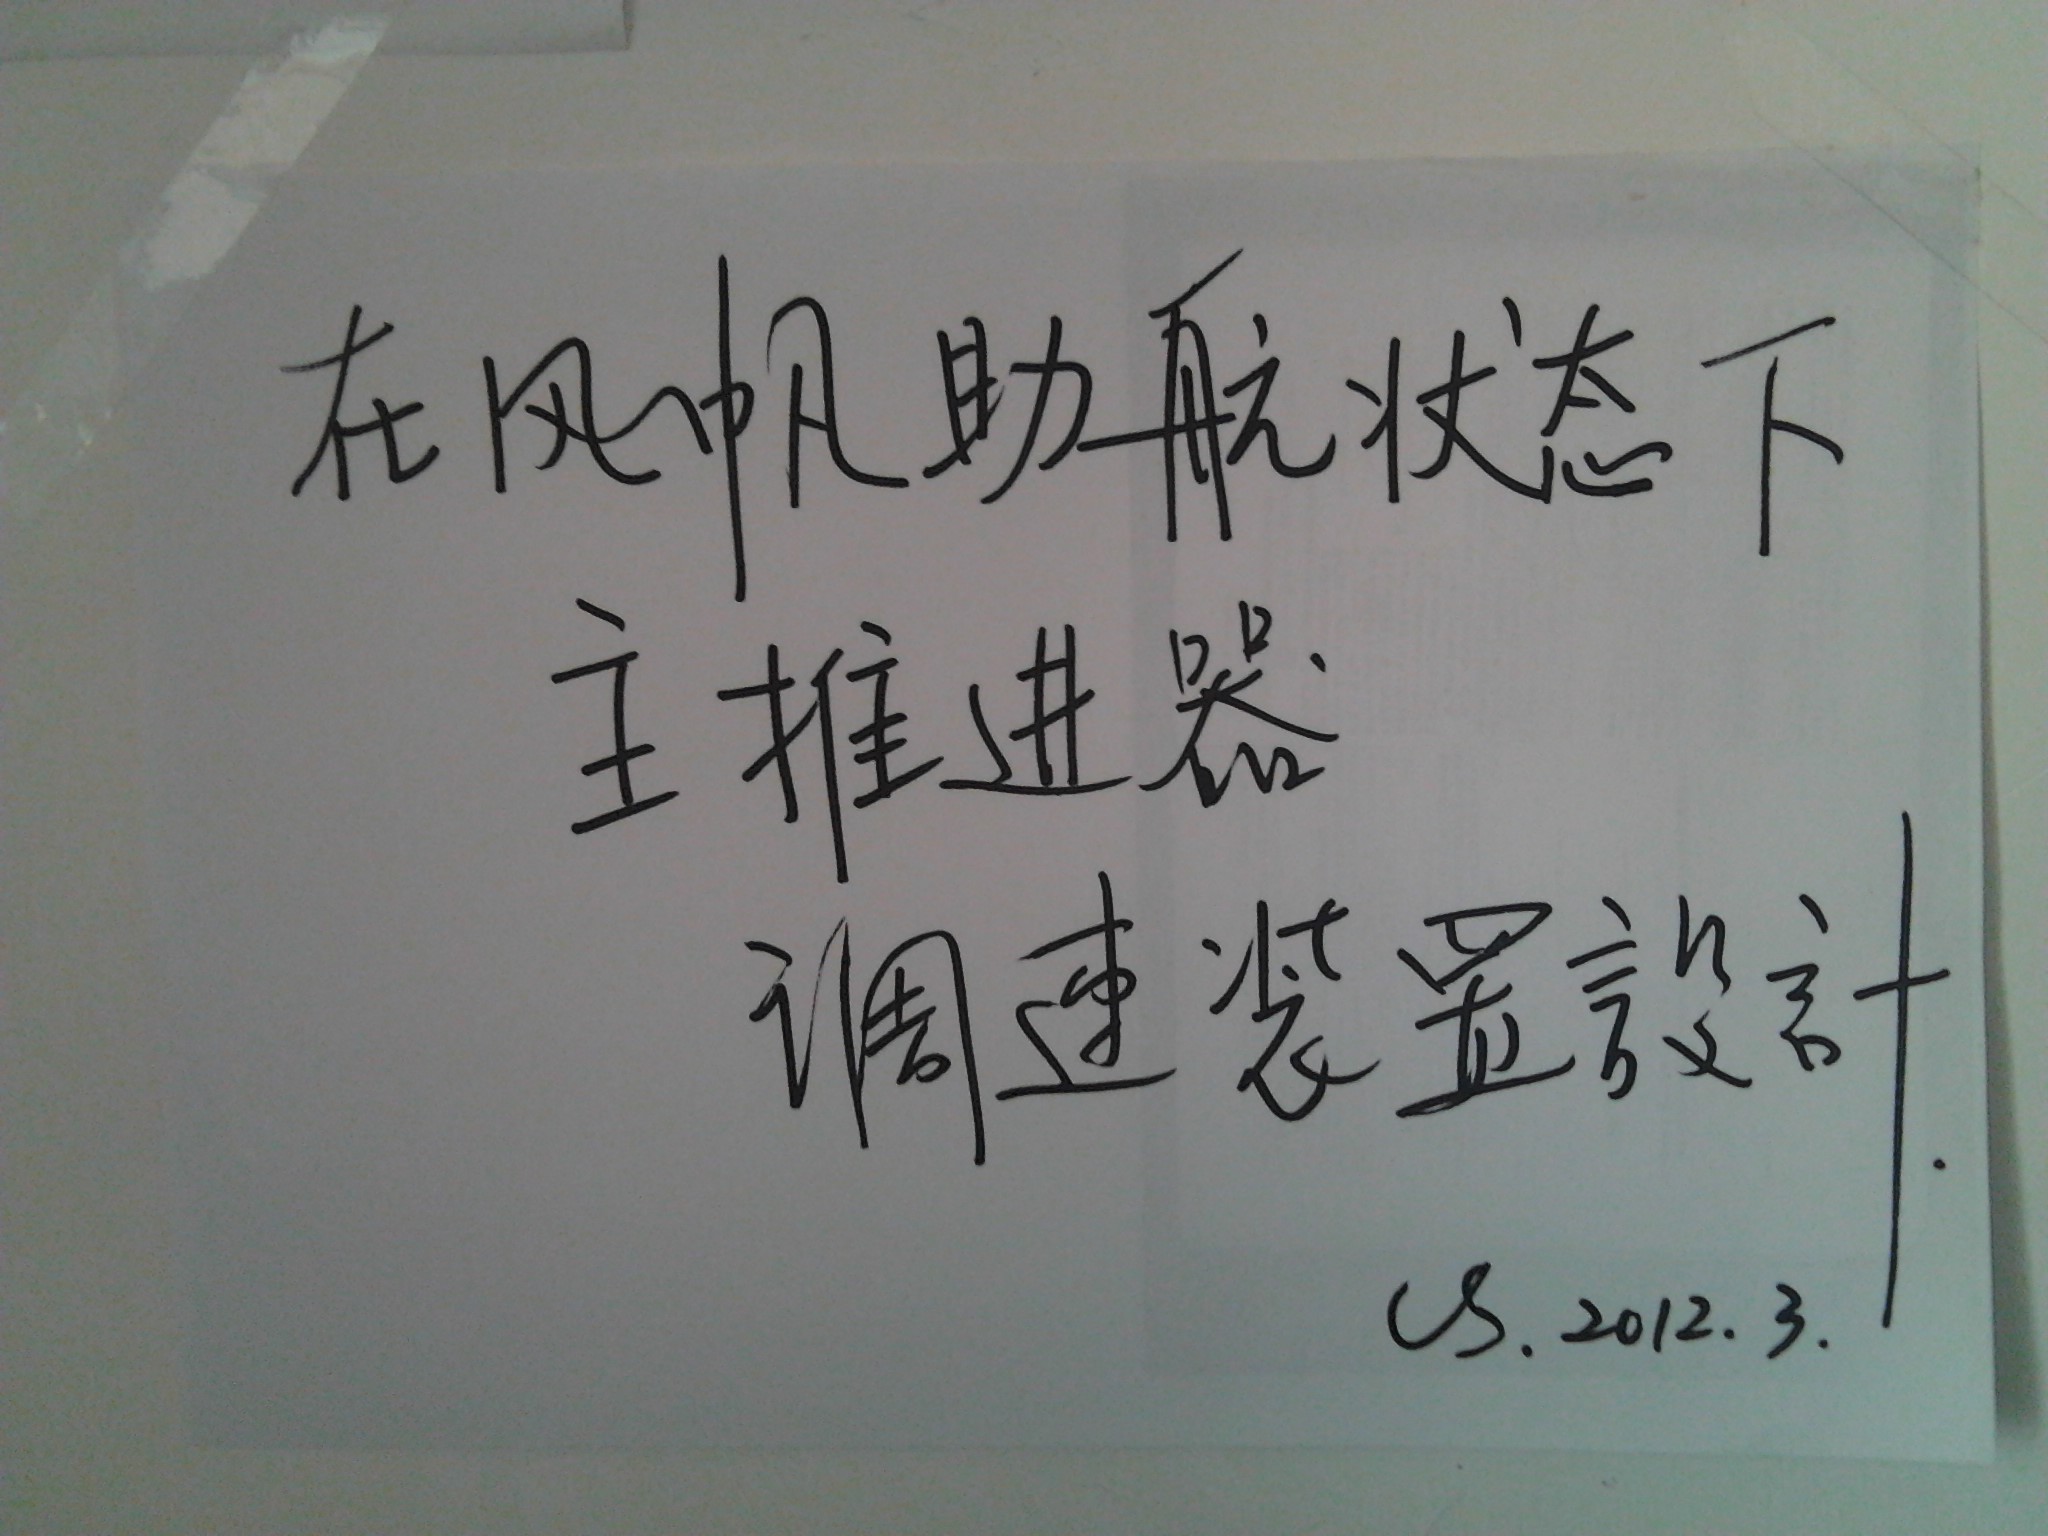 在风帆助航状态下
主推进器
调速装置設計.
CS. 2012. 3.